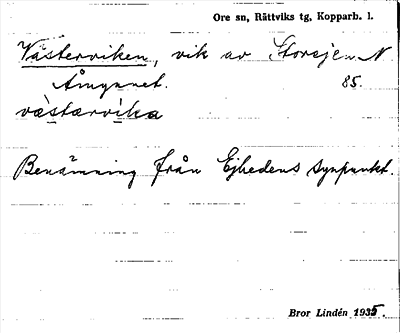 Ore sn, Rättviks tg, Kopparb. l.
Västerviken, vik av Storejen N
Åmynnet. 85.
västærvika
Benämning från Ejhedens synpunkt.
Bror Lindén 1935.